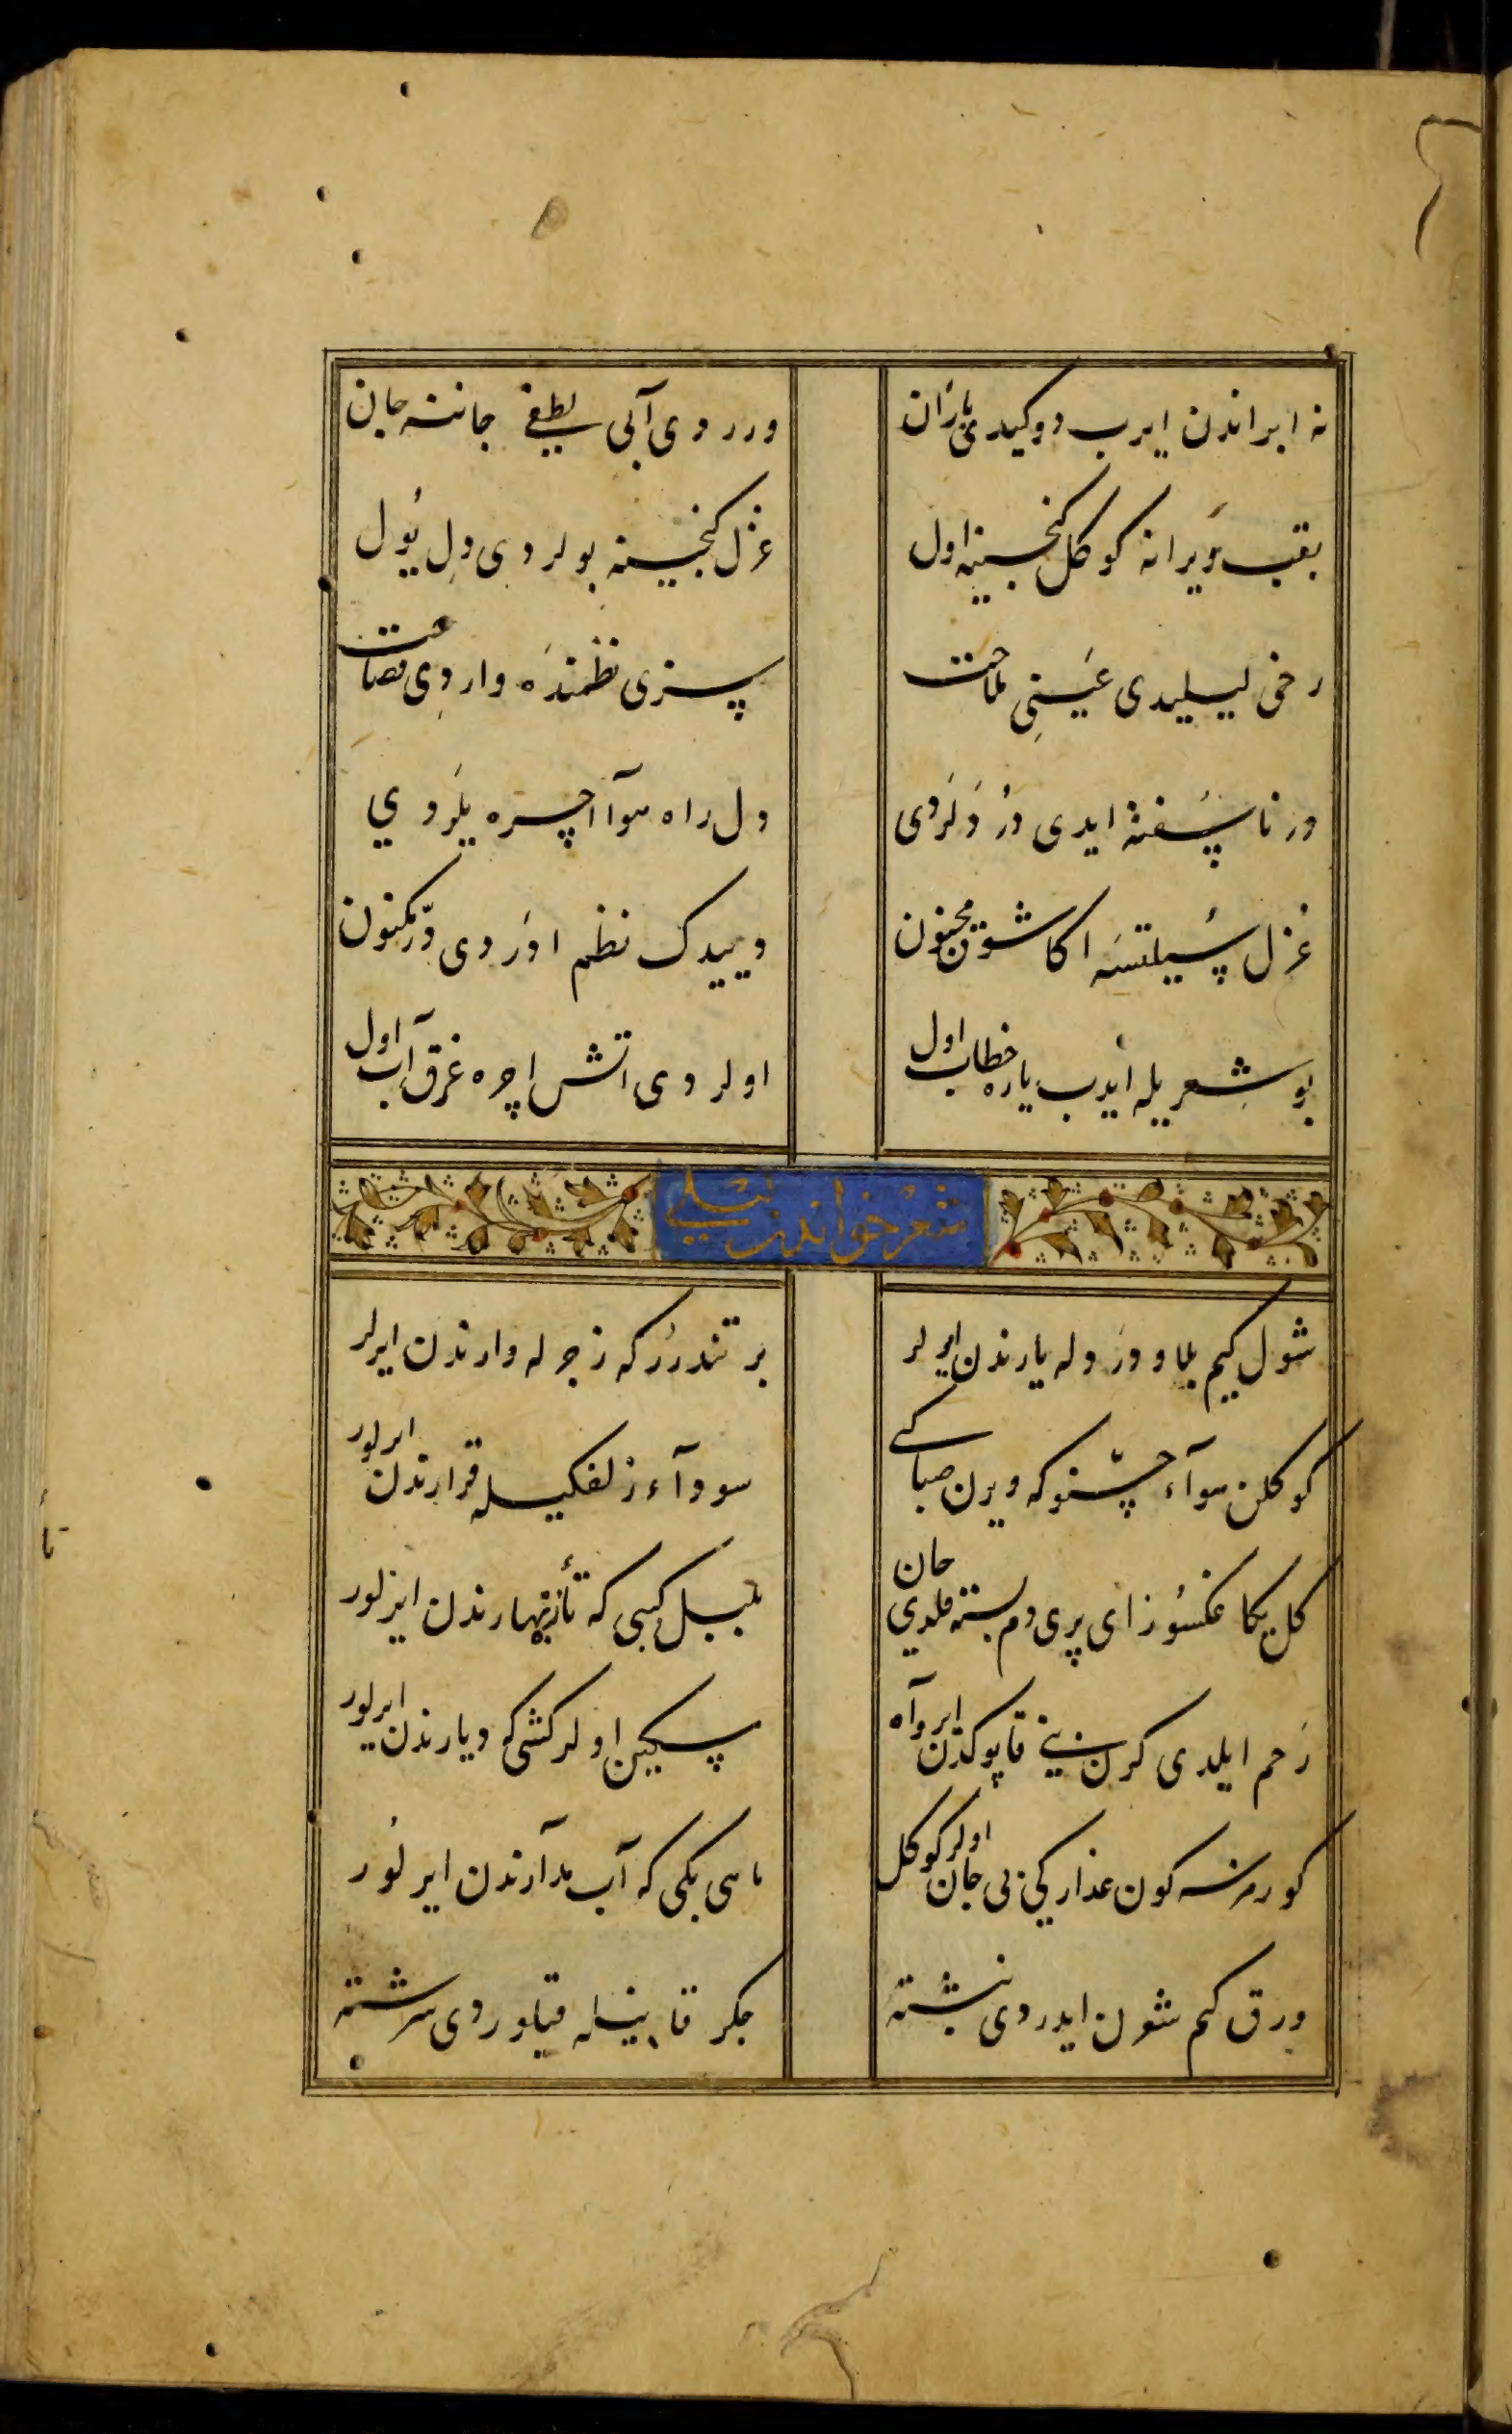 نه ابر اندن ایرب دوکیدی باران
ورردی آبی لطفی جاننه جان
یقب ویرانه کوکل کنجینه اول
غزل کنجینه بولردی ول یول
رخی لیلیدی عینی ملاحت
سزی نظمنده واردی فصاحت
در ناسفته ایدی در دلردی
ول راه هوا اچره یلردی
غزل سیلتسه اکا شوق مجنون
دییدک نظم اوردی در مکنون
بو شعریله ایدب یاره خطاب اول
اولردی اتش اچره غرق آب اول
شعر خواندن لیلی
شول کیم بلا و درد وله یارندن ایرلر
بر تندرر که زجر له وارندن ایرلر
کوکلن هوآء حسنوکه ویرن صباکے
سودآء زلفکیله قرارندن ایرلور
کل یکا عکسوز ای پری دم بسته قلدی جان
بلبل کبی که تازه بهارندن ایرلور
رحم ایلدی کرن بنی قاپوکدن ایرو آه
مسکین اولر کشی که دیارندن ایرلور
کورمزسه کون عذارکی بی جان اولر کوکل
ماهی بکی که آب مدارندن ایرلور
ورق کم شون ایدردی نبشته
جکر قانیله قیلوردی سرشته